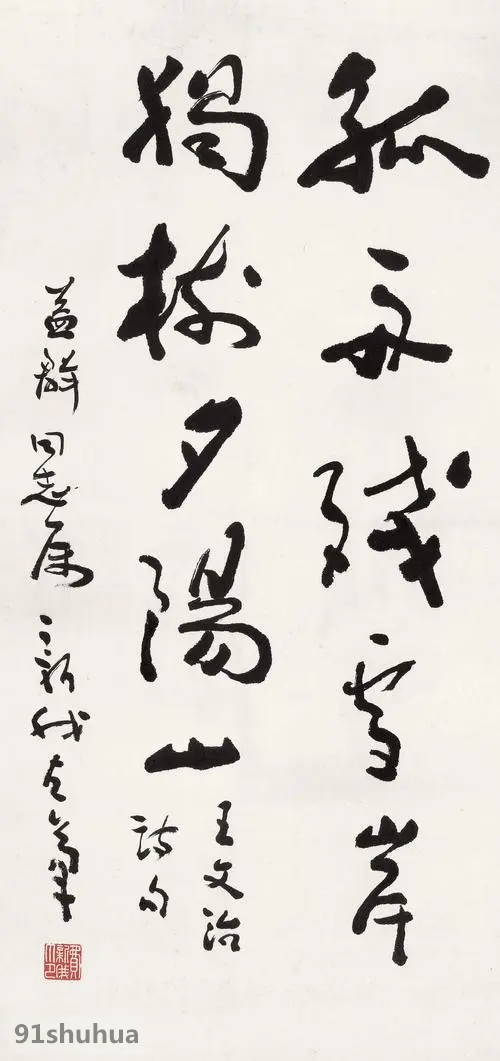 孤舟殘雪岸
獨樹夕陽山
王文治
詩句
同志属 新我左筆
91shuhua